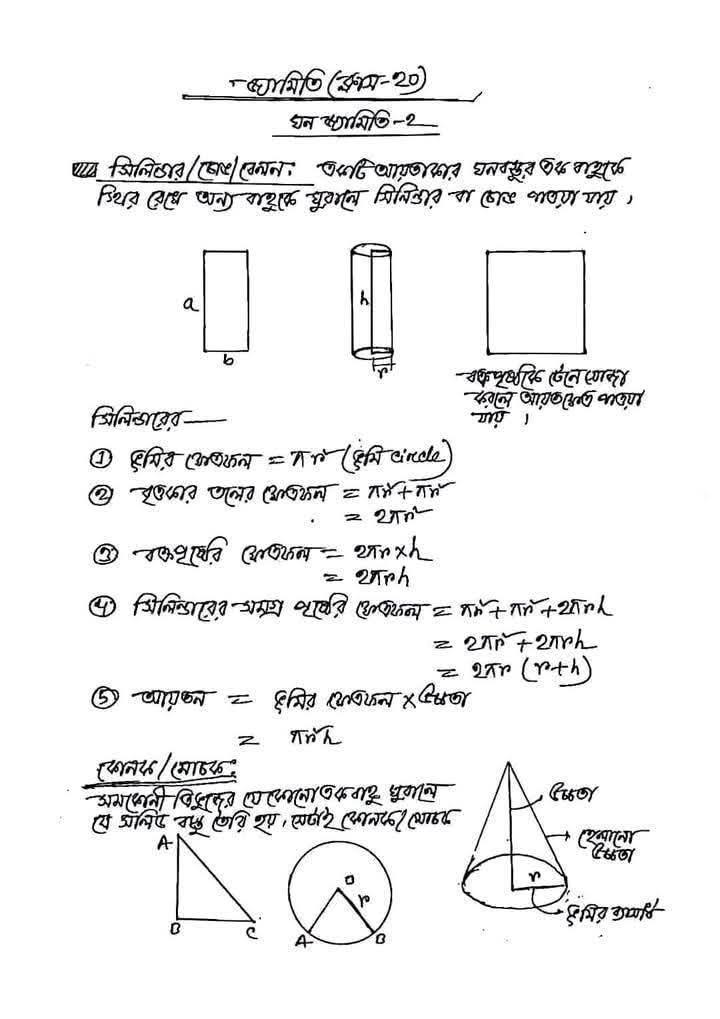 জ্যামিতি (ক্লাস-২০)
ঘন জ্যামিতি-২
সিলিন্ডার/চোঙ/বেলন: একটি আয়তাকার ঘনবস্তুর এক বাহুকে
স্থির রেখে অন্য বাহুকে ঘুরালে সিলিন্ডার বা চোঙ পাওয়া যায়।
a
b
h
r
বক্রপৃষ্ঠকে টেনে সোজা
করলে আয়তক্ষেত্র পাওয়া
যায়।
সিলিন্ডারের—
① ভূমির ক্ষেত্রফল = πr² (ভূমি circle)
② বৃত্তাকার তলের ক্ষেত্রফল = πr² + πr²
= ২πr²
③ বক্রপৃষ্ঠের ক্ষেত্রফল = ২πr × h
= ২πrh
④ সিলিন্ডারের সমগ্র পৃষ্ঠের ক্ষেত্রফল = πr² + πr² + ২πrh
= ২πr² + ২πrh
= ২πr (r+h)
⑤ আয়তন = ভূমির ক্ষেত্রফল × উচ্চতা
= πr²h
কোনক/মোচক:
সমকোনী ত্রিভুজের যে কোনো এক বাহু ঘুরালে
যে সলিড বস্তু তৈরি হয়, সেটাই কোনক/মোচক
উচ্চতা
হেলানো
উচ্চতা
r
ভূমির ব্যাসার্ধ
A
B
C
O
r
A
B